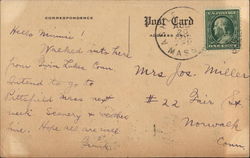 CORRESPONDENCE
Post Card
ADDRESS ONLY
MASS
Hello Minnie!
Walked into here
from Twin Lakes Conn.
Intend to go to
Pittsfield Mass next
week Scenery & weather
fine. Hope all are well
Frank
Mrs. Jos. Miller
# 22 Fair St
Norwalk
Conn